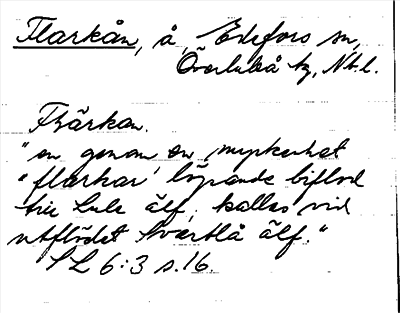 Flarkån, å, Edefors sn,
Överluleå tg, Nb. l.
Flärkan.
"en genom en myckenhet
"flarkar" löpande biflod
till Lule älf; kallas vid
utflödet Svartlå älf."
SL 6:3 s. 16.